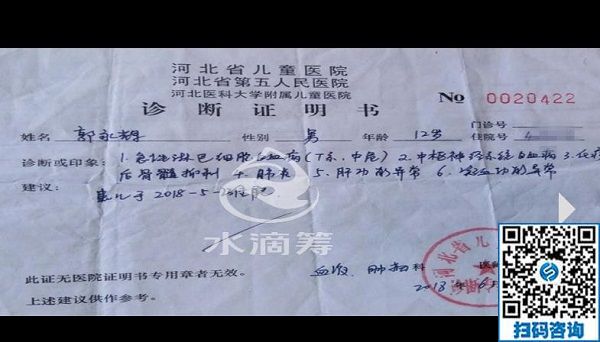 河北省儿童医院
河北省第五人民医院
河北医科大学附属儿童医院
诊断证明书
No 0020422
姓名 郭 性别 男 年龄 12岁 门诊号
住院号
诊断或印象: 1.急性淋巴细胞白血病(T系、中危) 2.中枢神经系统白血病 3.化疗
后骨髓抑制 4.肺炎 5.肝功能异常 6.凝血功能异常
建议: 患儿于2018-5-
水滴筹
此证无医院证明书专用章者无效。
上述建议供作参考。
血液 肿瘤科
2018年6月
河北省儿
扫码咨询